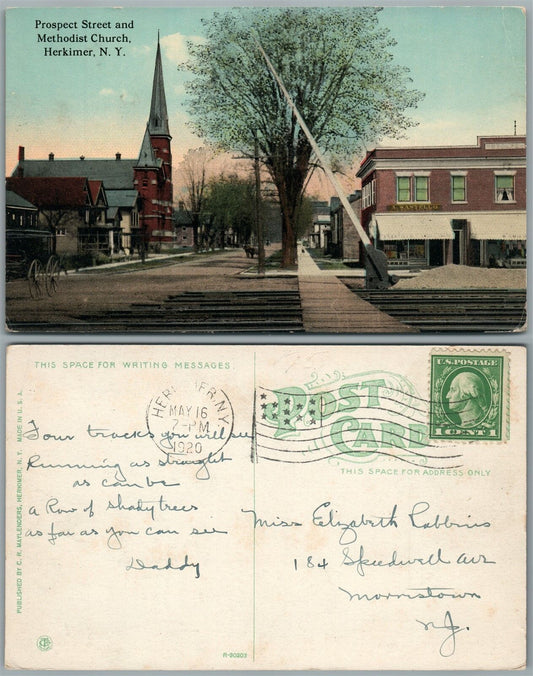 Prospect Street and
Methodist Church,
Herkimer, N. Y.
THIS SPACE FOR WRITING MESSAGES.
HERKIMER, N.Y.
MAY 16
7-PM
1920
POST
CARD
THIS SPACE FOR ADDRESS ONLY
U.S. POSTAGE
1 CENT 1
Four tracks you will see
Running as straight
as can be
a Row of shady trees
as far as you can see
Daddy
Miss Elizabeth Robbins
184 Speedwell Ave
Morristown
N.J.
PUBLISHED BY C. R. MAYLENDERS, HERKIMER, N. Y. MADE IN U. S. A.
R-90303